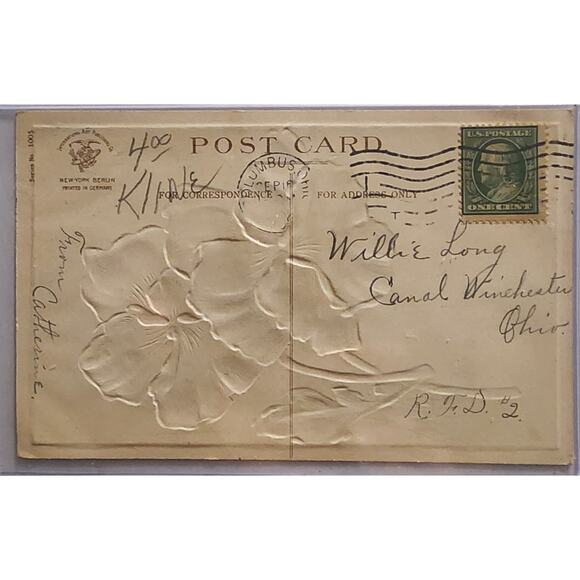 Series No. 1005
International Art Publishing Co.
NEW-YORK BERLIN
PRINTED IN GERMANY
4.00
POST CARD
FOR CORRESPONDENCE
FOR ADDRESS ONLY
COLUMBUS OHIO
SEP 18
U.S. POSTAGE
ONE CENT
From Catherine.
Willie Long
Canal Winchester
Ohio.
R.F.D. #2.